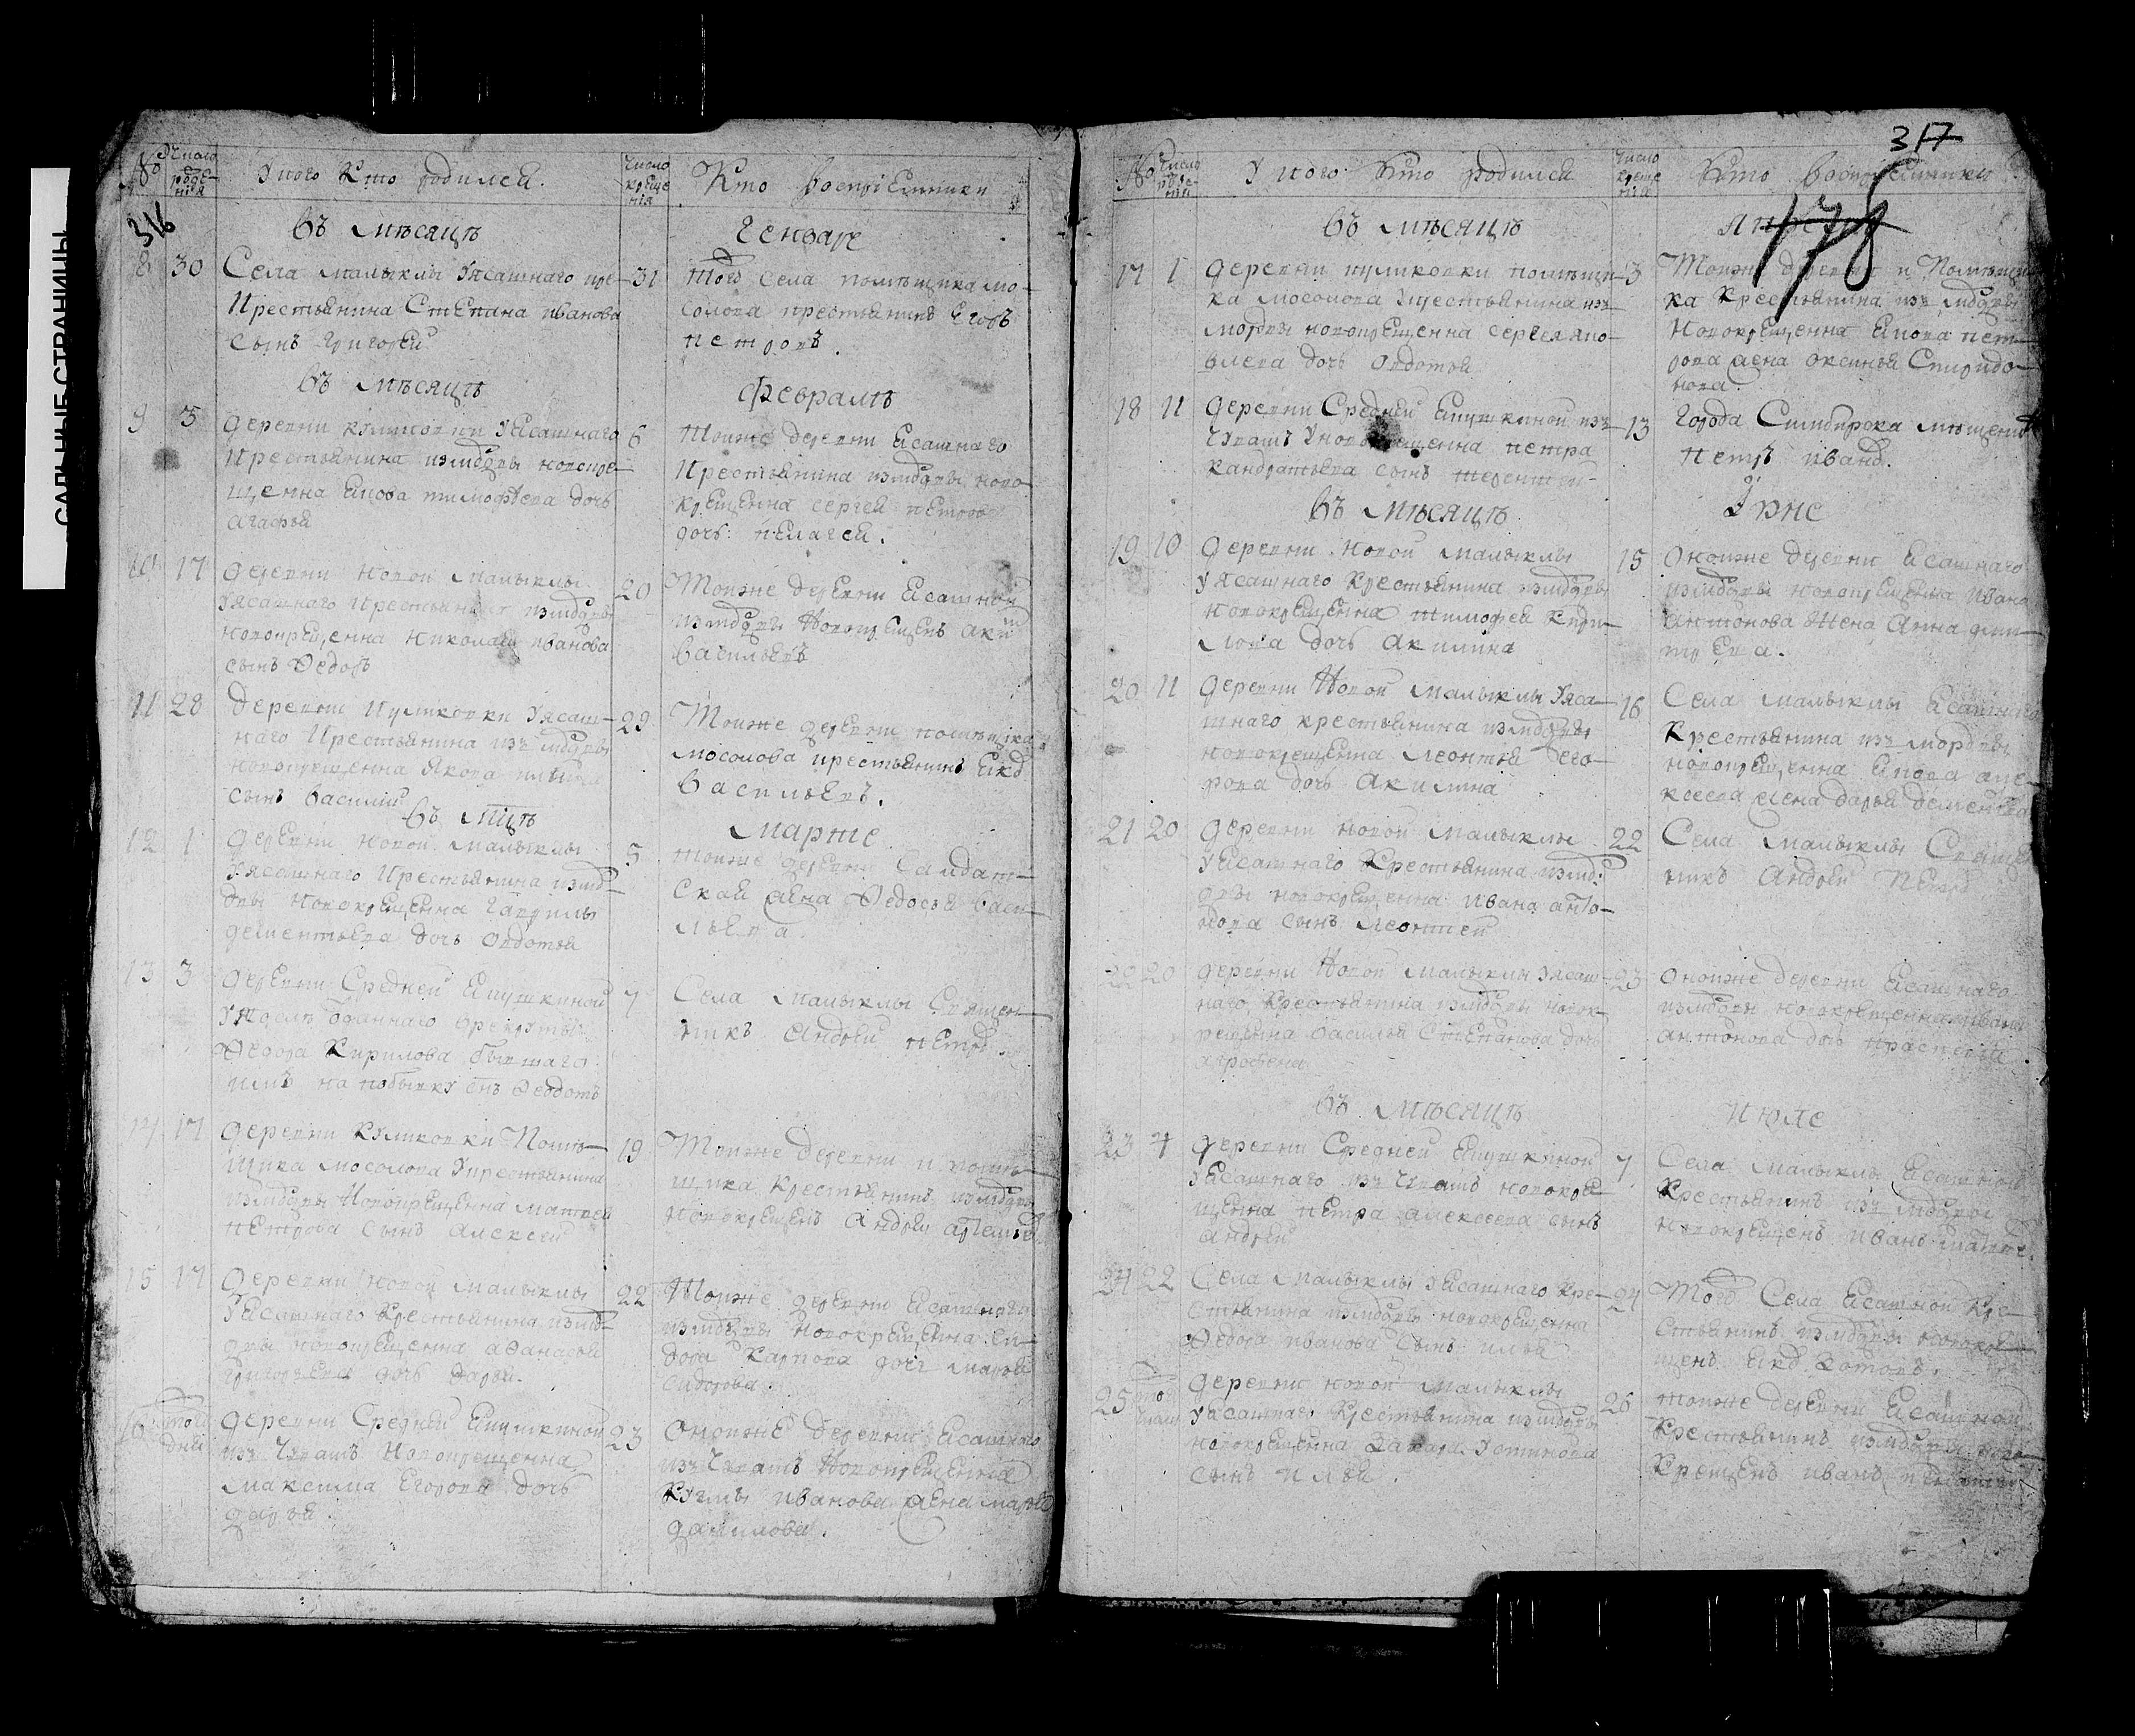 №
Число
рожде-
нія
У кого Кто родился.
Число
креще
нія
Кто Воспріемники
316
въ мѣсяцѣ
Генваре
8 30
Села малыклы Уясашнаго кре-
крестьянина Степана иванова
сынъ Григорей
31
того села помѣщика мо-
солова крестьянинъ Егоръ
петровъ.
въ мѣсяцѣ
Февралѣ
9 5
деревни куликовки Уясашнаго
крестьянина измордвы новокре-
щенна Якова тимофѣева дочь
агафья
6
тоиже деревни Ясашнаго
крестьянина измордвы ново
крещенна сергея петрова
дочь пелагея.
10 17
деревни Новой малыклы
Уясашнаго крестьянина измордвы
новокрещенна Николая иванова
сынъ Ѳедоръ
20
Тоиже деревни Ясашной
измордвы Новокрещенъ аким
васильевъ
11 28
деревни куликовки Уясаш-
наго крестьянина изъ мордвы
новокрещенна якова
сынъ василий
29
Тоиже деревни помѣщика
мосолова крестьянинъ
васильевъ.
въ мцѣ
марте
12 1
деревни новой малыклы
Уясашнаго крестьянина измор-
двы новокрещенна гаврилы
дементьева дочь овдотья
5
тоиже деревни Салдат-
ская жена Ѳедосья васи-
льева
13 3
деревни Средней Якушкиной
Ѳедора Кирилова бывшаго
на побывку снъ Ѳеодотъ
7
Села малыклы Священ-
никъ Андрей петровъ
14 17
деревни куликовки Помѣ-
щика мосолова Укрестьянина
измордвы Новокрещенна матвея
петрова сынъ алексей
19
Тоиже деревни и помѣ-
щика крестьянинъ измордвы
новокрещенъ Андрей артемьевъ
15 17
деревни новой малыклы
Уясашнаго Крестьянина измор-
двы новокрещенна аѳанасья
григорьева дочь дарья.
22
Тоиже деревни Ясашнаго
измордвы новокрещенна Си-
дора Карпова дочь марья
сидорова.
16 того
дни
деревни Средней Якушкиной
изъ Чувашъ Новокрещенна
максима Егорова дочь
дарья.
23
Оноиже деревни Ясашнаго
изъ Чувашъ Новокрещенна
Кузмы иванова жена марья
данилова.
317
178
№
Число
рожде-
нія
У кого Кто родился
Число
креще
нія
Кто Воспріемники
въ мѣсяцѣ
Апреле
17 1
деревни куликовки помѣщи-
ка мосолова Укрестьянина изъ
мордвы новокрещенна сергея яко-
влева дочь овдотья
3
Тоиже деревни и Помѣщи-
ка крестьянина изъ мордвы
Новокрещенна Якова пет-
рова жена оксинья Спиридо-
нова.
18 11
деревни Средней Якушкиной изъ
Чувашъ Уновокрещенна петра
кандратьева сынъ терентей
13
города Синбирска мещенинъ
петръ ивановъ.
въ мѣсяцѣ
Іюне
19 10
деревни новой малыклы
Уясашнаго Крестьянина измордвы
новокрещенна тимофея Кири-
лова дочь акилина
15
Оноиже деревни Ясашнаго
измордвы новокрещенна ивана
антонова жена Анна дми-
трева.
20 11
деревни Новой малыклы Уяса-
шнаго крестьянина измордвы
новокрещенна леонтья его-
рова дочь акилина
16
Села малыклы Ясашнаго
Крестьянина изъ мордвы
новокрещенна Якова але-
ксеева жена дарья дементьева
21 20
деревни новой малыклы
Уясашнаго Крестьянина измор-
двы новокрещенна ивана анто-
нова сынъ леонтей
22
Села малыклы Священ
никъ Андрей Петровъ
22 20
деревни Новой малыклы Уясаш-
наго крестьянина измордвы новок-
рещенна василья Степанова дочь
23
Оноиже деревни Ясашнаго
измордвы новокрещенна ивана
антонова дочь прасковья.
въ мѣсяцѣ
июле
23 4
деревни Средней Якушкиной
Уясашнаго изъ Чувашъ новокре-
щенна петра алексеева сынъ
андрей
7
Села малыклы Ясашной
Крестьянинъ изъ мордвы
новокрещенъ иванъ
24 22
Села малыклы Уясашнаго Кре-
стьянина измордвы новокрещенна
Ѳедора иванова сынъ илья
24
Того Села Ясашной Кре-
стьянинъ измордвы новокре-
щенъ
25 того
числа
деревни новой малыклы
Уясашнаго Крестьянина измордвы
новокрещенна Захара Устинова
сынъ илья.
26
тоиже деревни Ясашной
Крестьянинъ измордвы ново-
крещенъ иванъ